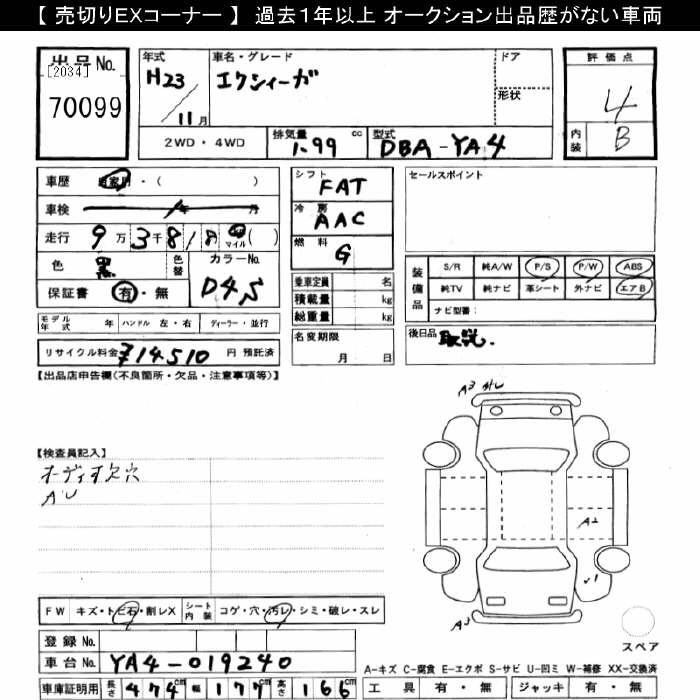 【 売切りEXコーナー 】 過去1年以上 オークション出品歴がない車両
出品No.
[2034]
70099
年式
H23
11月
車名・グレード
エクシィーガ
ドア
形状
2WD・4WD
排気量
1.99 cc
型式
DBA-YA4
評価点
4
内装
B
車歴 自家用・( )
車検 年 月
走行 9万3千8 1 8 マイル ( )
色 黒 色替 カラーNo. D4S
保証書 有・無
モデル年式 年 ハンドル 左・右 ディーラー・並行
リサイクル料金 ¥14510 円 預託済
シフト FAT
冷房 AAC
燃料 G
乗車定員 名
積載量 kg
総重量 kg
名変期限
月 日
セールスポイント
装備品
S/R 純A/W P/S P/W ABS
純TV 純ナビ 革シート 外ナビ エアB
ナビ型番:
後日品 取説.
【出品店申告欄(不良箇所・欠品・注意事項等)】
【検査員記入】
オーディオ欠穴
AU
A3
A2
A3
FW キズ・トビ石・割レX シート内装 コゲ・穴・汚レ・シミ・破レ・スレ
登録No.
車台No. YA4-019240
車庫証明用 長さ 474cm 幅 177cm 高さ 166cm
スペア
A−キズ C−腐食 E−エクボ S−サビ U−凹ミ W−補修 XX−交換済
工具 有・無 ジャッキ 有・無